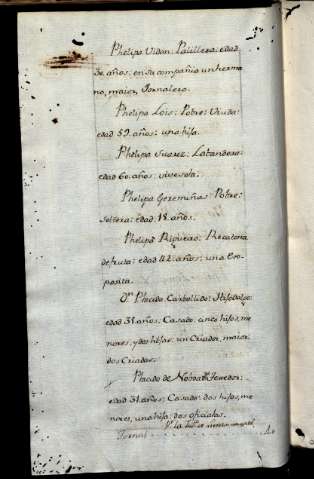 Phelipa Vidan: Palillera: edad
de años, en su compañia un herma
no, maior, Jornalero.
Phelipa Lois: Pobre: Viuda:
edad 59. años: una hija.
Phelipa Suarez: Labandera:
edad 60. años, vive sola.
Phelipa Geremiñas: Pobre:
soltera: edad 18. años.
Phelipa Riguera: Recatona
de fruta: edad 42. años: una Ex
posita.
Dn. Placido Carballido: Hijodalgo:
edad 31. años, Casado, cinco hijos, me
nores, y dos hijas: un Criador, maior
dos Criadas.
Placido de Noboa: Texedor:
edad 31. años: Casado: dos hijos, me
nores, una hija: dos oficialas.
Jornal